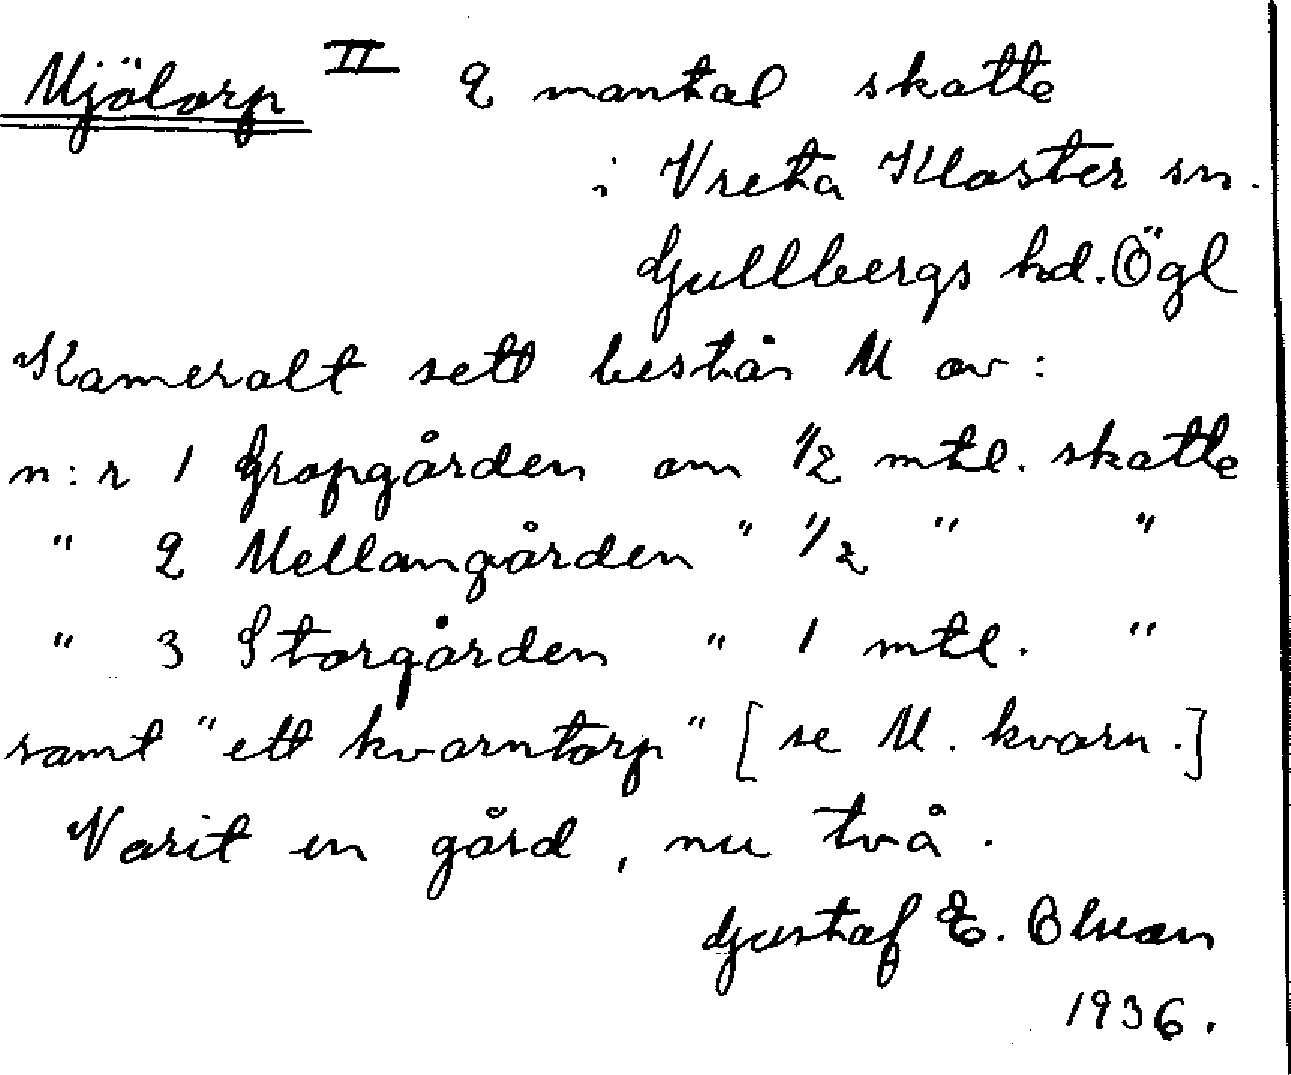 Mjölorp II 2 mantal skatte
i Vreta Kloster sn.
Gullbergs hd. Ögl
Kameralt sett består M av:
n:r 1 Gropgården om 1/2 mtl. skatte
" 2 Mellangården " 1/2 " "
" 3 Storgården " 1 mtl. "
samt "ett kvarntorp" [se M. kvarn.]
Varit en gård, nu två.
Gustaf E. Olsson
1936.